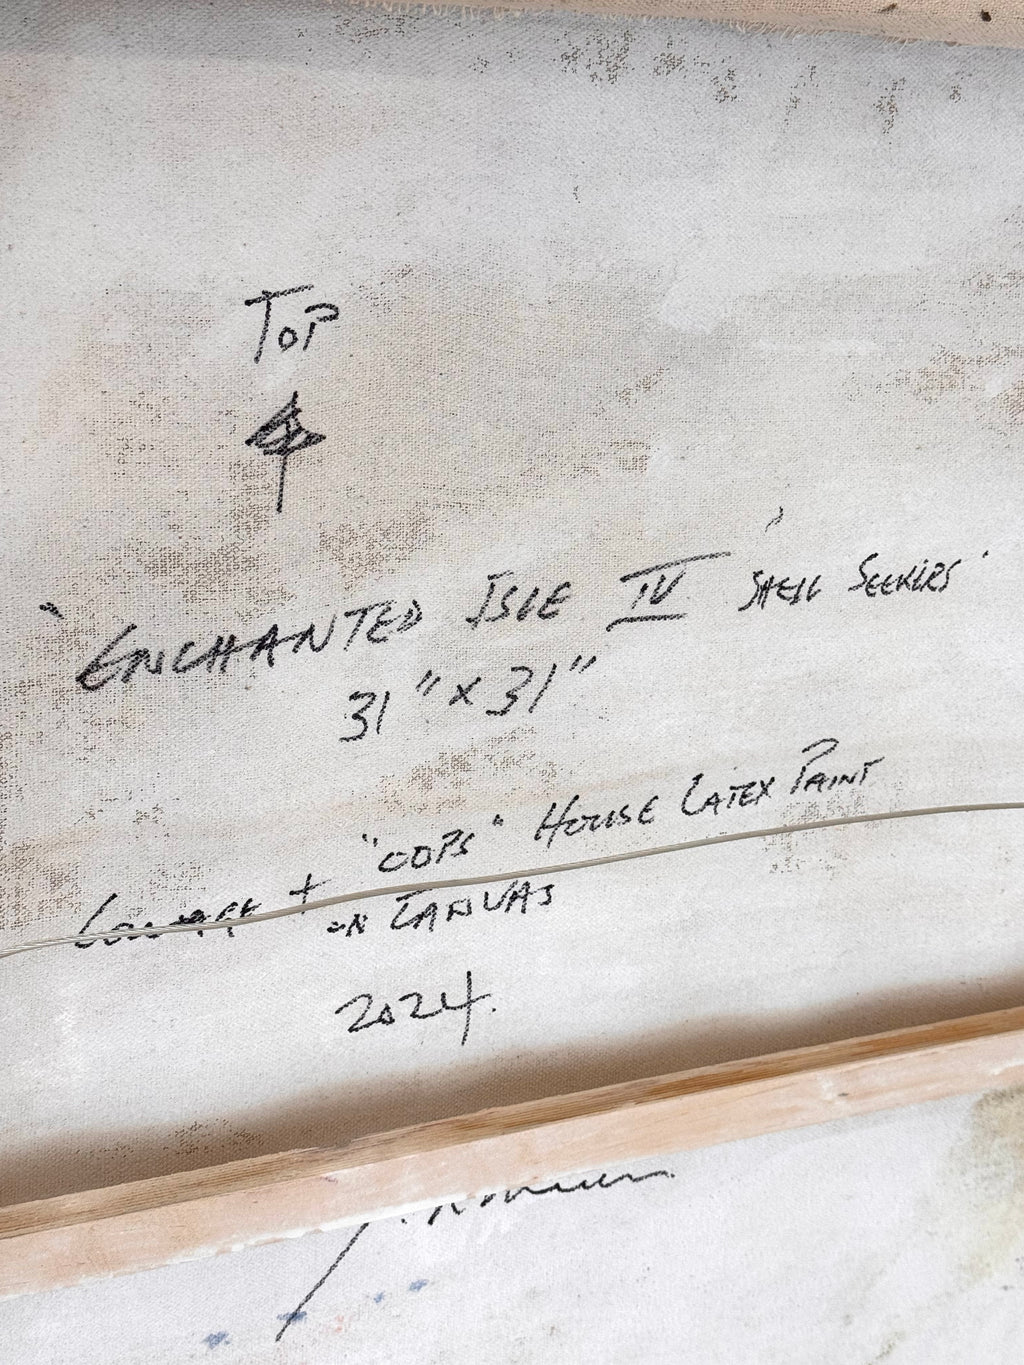 TOP
'ENCHANTED ISLE IV 'SHELL SEEKERS'
31" x 31"
"OOPS" HOUSE LATEX PAINT
COLLAGE + ON CANVAS
2024.